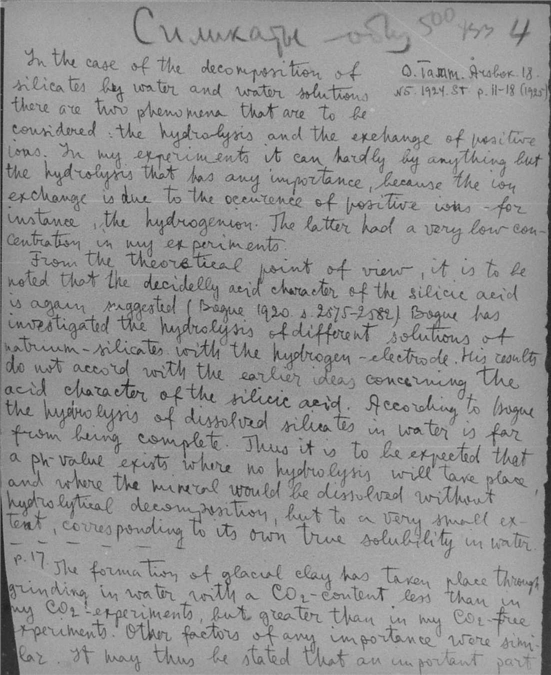 Силикаты - общ 500 4
In the case of the decomposition of
silicates by water and water solutions
there are two phenomena that are to be
O. Tamm. Årsbok 18.
N5. 1924. St p. 11-18 (1925)
considered: the hydrolysis and the exehange of positive
ions. In my experiments it can hardly by anything but
the hydrolysis that has any importance, because the ion
exchange is due to the occurence of positive ions - for
instance, the hydrogenion. The latter had a very low con-
centration in my experiments.
From the theoretical point of view, it is to be
noted that the decidelly acid character of the silicic acid
is again suggested (Bogue 1920. s. 2575-2582) Bogue has
investigated the hydrolysis of different solutions of
natrium-silicates with the hydrogen-electrode. His results
do not accord with the earlier ideas concerning the
acid character of the silicic acid. According to Bogue
the hydrolysis of dissolved silicates in water is far
from being complete. Thus it is to be expected that
a ph-value exists where no hydrolysis will take place,
and where the mineral would be dissolved without
hydrolytical decomposition, but to a very small ex-
tent, corresponding to its own true solubility in water
p. 17. The formation of glacial clay has taken place through
grinding in water with a CO2-content less than in
my CO2-experiments, but greater than in my CO2-free
experiments. Other factors of any importance were simi-
lar. It may thus be stated that an important part